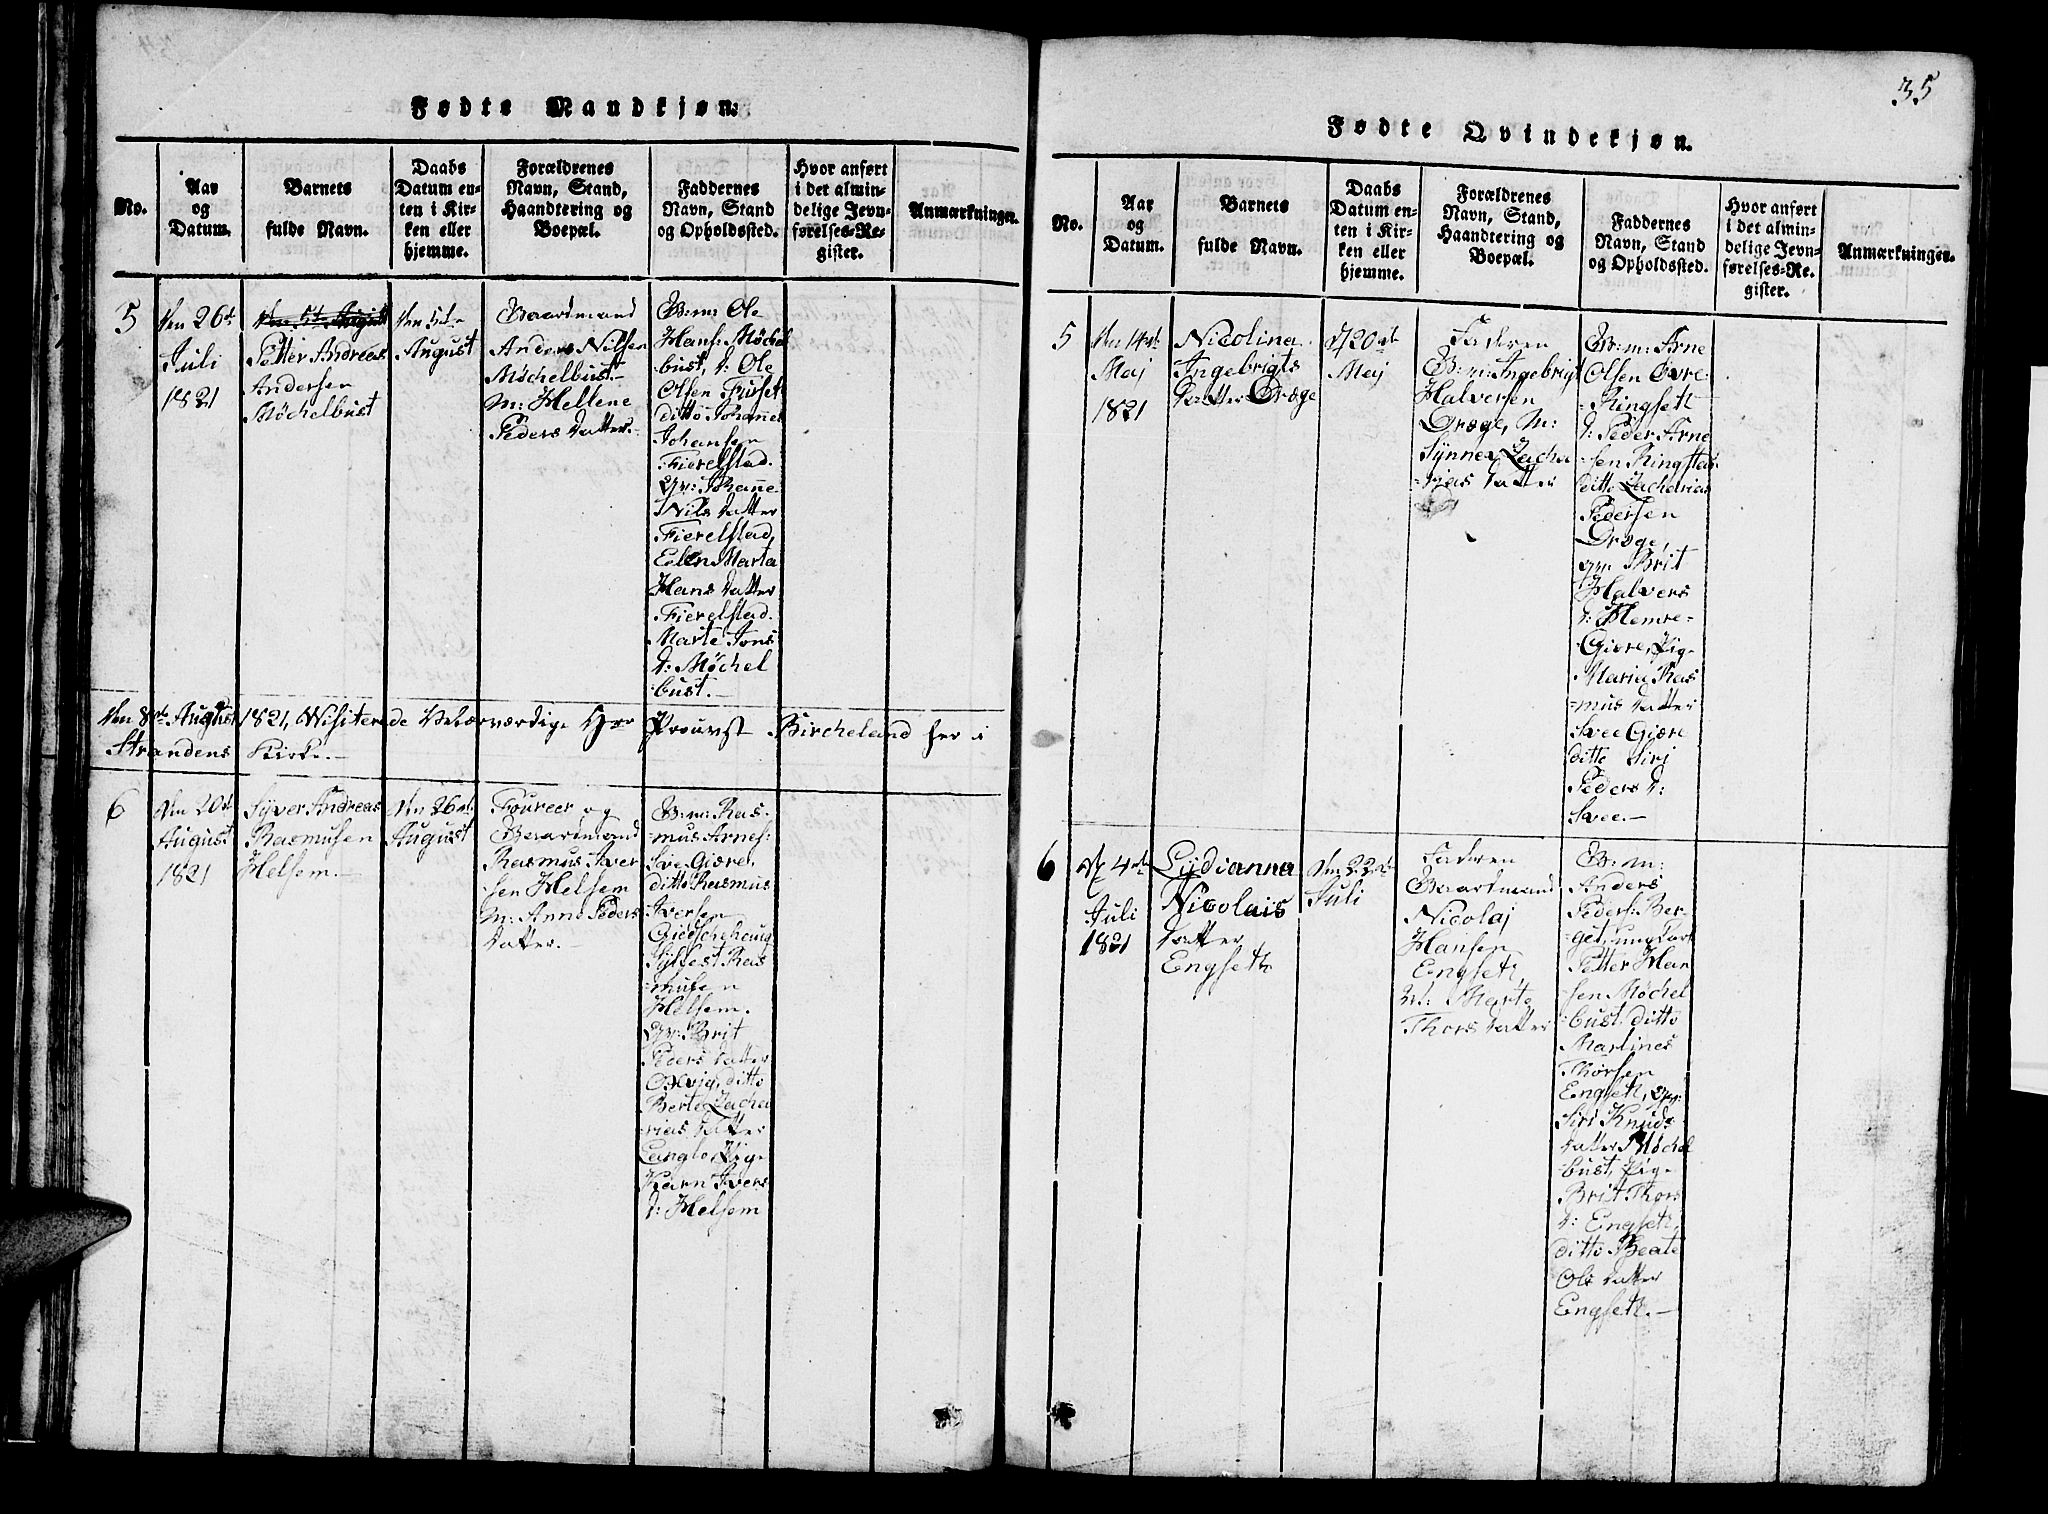 35
Fødte Mandkjøn.
No.
Aar
og
Datum.
Barnets
fulde Navn.
Daabs
Datum en-
ten i Kir-
ken eller
hjemme.
Forældrenes
Navn, Stand,
Haandtering og
Boepæl.
Faddernes
Navn, Stand
og Opholdssted.
Hvor anført
i det almin-
delige Jevn-
førelses-Re-
gister.
Anmærkninger.
5
Den 26de
Juli
1821
Den 5t. August
Petter Andreas
Andersen
Møchelbust
Den 5te
August
Gaardmand
Anders Nilsen
Møchelbust
M: Hellene
Peders datter.
G:m: Ole
Hans: Møchel
bust, d: Ole
Olsen Fuset
ditto Johannes
Johansen
Fierelstad.
Gv: Johanne
Nils datter
Fierelstad,
Ellen Marta
Hans datter
Fierelstad.
Marte Jons
d: Møchel
bust.
Den 8de August 1821, Wisiterede Velærværdige Hr Prouvst Bircheland her i
Strandens Kirke.
6
Den 20de
August
1821
Syver Andreas
Rasmusen
Helsem.
Den 26de
August
Foureer og
Gaardmand
Rasmus Iver
sen Helsem
M: Anne Peders
datter.
G:m: Ras-
mus Arnes:
Sve Giære,
ditto Rasmus
Iversen
Giedschehaug
Sylfest Ras
musen
Helsem.
Gv: Brit
Peders datter
ditto
Berte Zacha
rias datter
Langlo, Pig.
Karn Ivers
d: Helsem
Fødte Qvindekjøn.
No.
Aar
og
Datum.
Barnets
fulde Navn.
Daabs
Datum en-
ten i Kir-
ken eller
hjemme.
Forældrenes
Navn, Stand,
Haandtering og
Boepæl.
Faddernes
Navn, Stand
og Opholdssted.
Hvor anført
i det almin-
delige Jevn-
førelses-Re-
gister.
Anmærkninger.
5
Den 14de
Maj
1821
Nicolina
Ingebrigts
datter Drøge
20de
Maj
Faderen
G:m: Ingebrigt
Halvorsen
Drøge, M:
Synnev Zacha
-rias datter
G:m: Arne
Olsen Øvre-
-Ringsett
d: Peder Arne
sen Ringstad
ditto Zacharias
Pedersen
Drøge,
Gv. Brit
Halvers
d: Hemre-
Giære, Pig-
Maria Ras
-mus datter
Svee Giære
ditto Siri
Peders d:
Svee.
6
4de
Juli
1821
Lydianna
Nicolais
datter
Engseth
Den 22de
Juli
Faderen
Gaardmand
Nicolaj
Hansen
Engseth,
M: Marte
Thors datter
G: m:
Anders
Peders: Ber-
get, ungkarl
Petter Han
sen Møchel
bust, ditto
Martines
Thorsen
Engseth, Gv:
Siri Knuds
datter Møchel
bust, Pig.
Brit Thors
d: Engseth,
ditto Beate
Ols datter
Engseth.